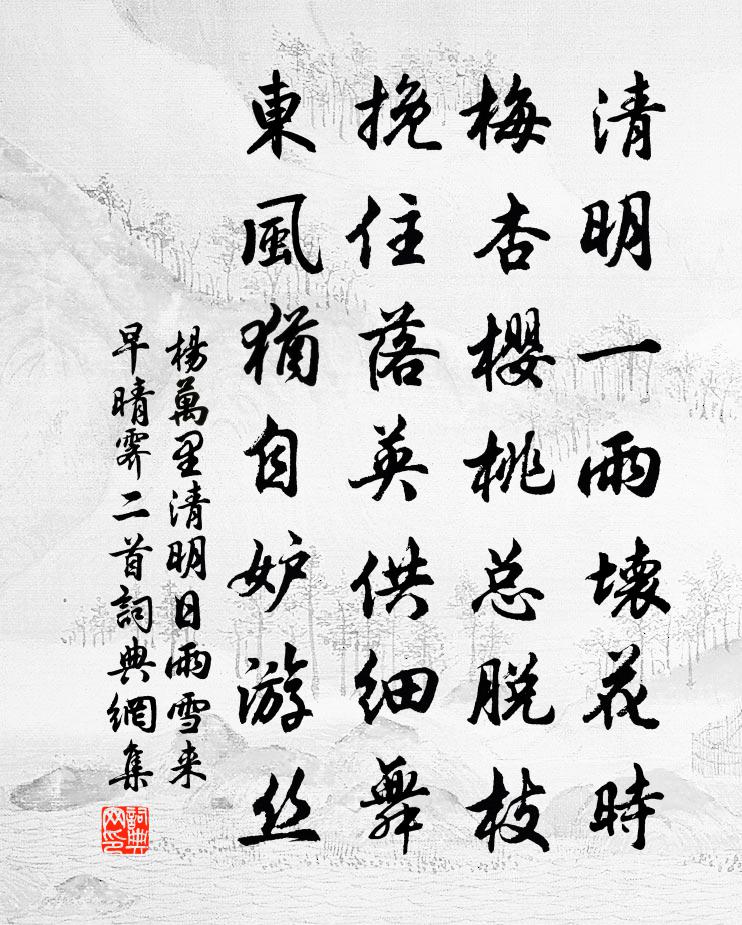 清明一雨壞花時
梅杏櫻桃总脫枝
挽住落英供细舞
東風猶自妒游丝
楊萬里清明日雨雪来
早晴霽二首詞典網集
詞典
网印